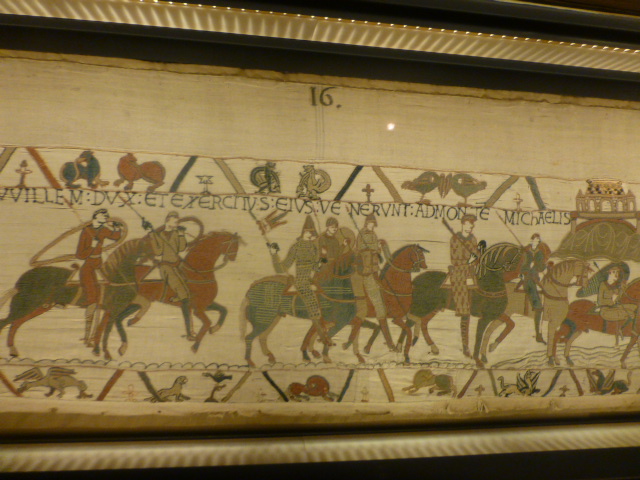 16.
VVILLEM: DVX: ET EXERCITVS: EIVS: VENERVNT: AD MONTE MICHAELIS